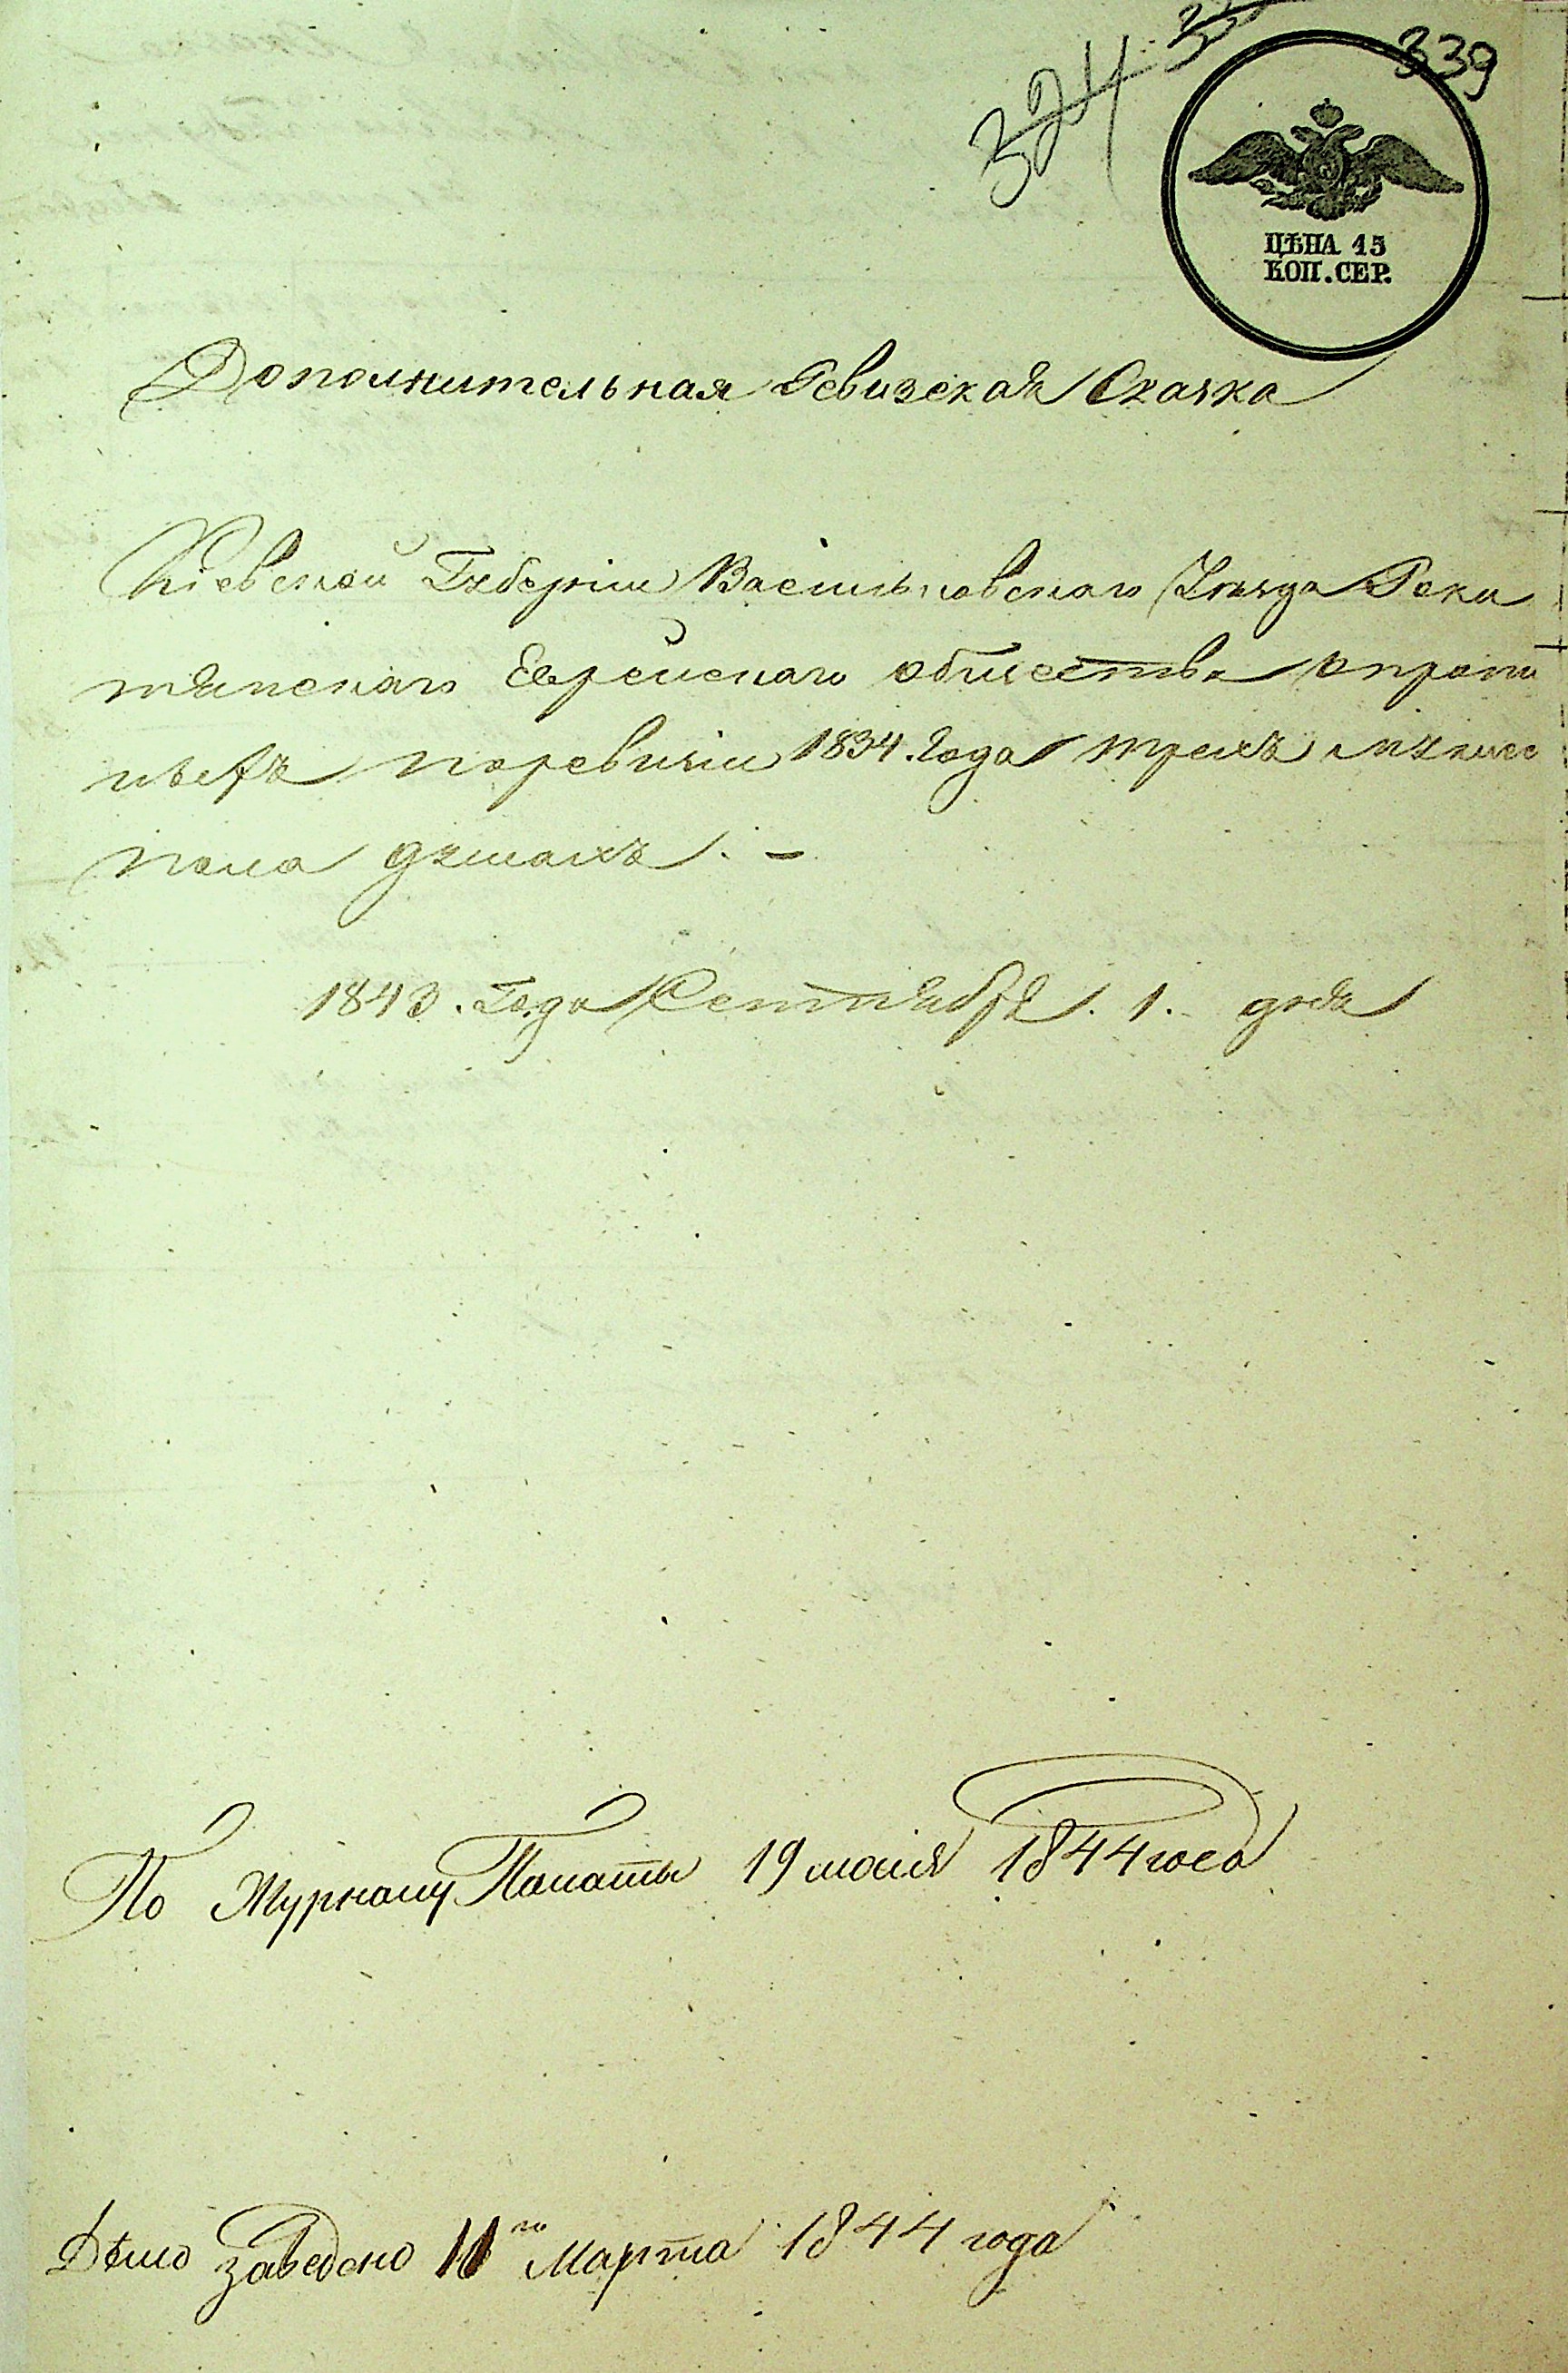 324
339
ЦѢНА 15
КОП. СЕР.
Дополнительная Ревизская Сказка
Кіевской Губерніи Васильковскаго Уѣзда Роки
тянскаго Еврейскаго общества опропи
ныхъ поревизіи 1834. Года трехъ мужеск
пола душахъ. –
1843. Года Сентября. 1. дня
По Журналу Палаты 19 маія 1844 года
Дѣло заведено 11го Марта 1844 года